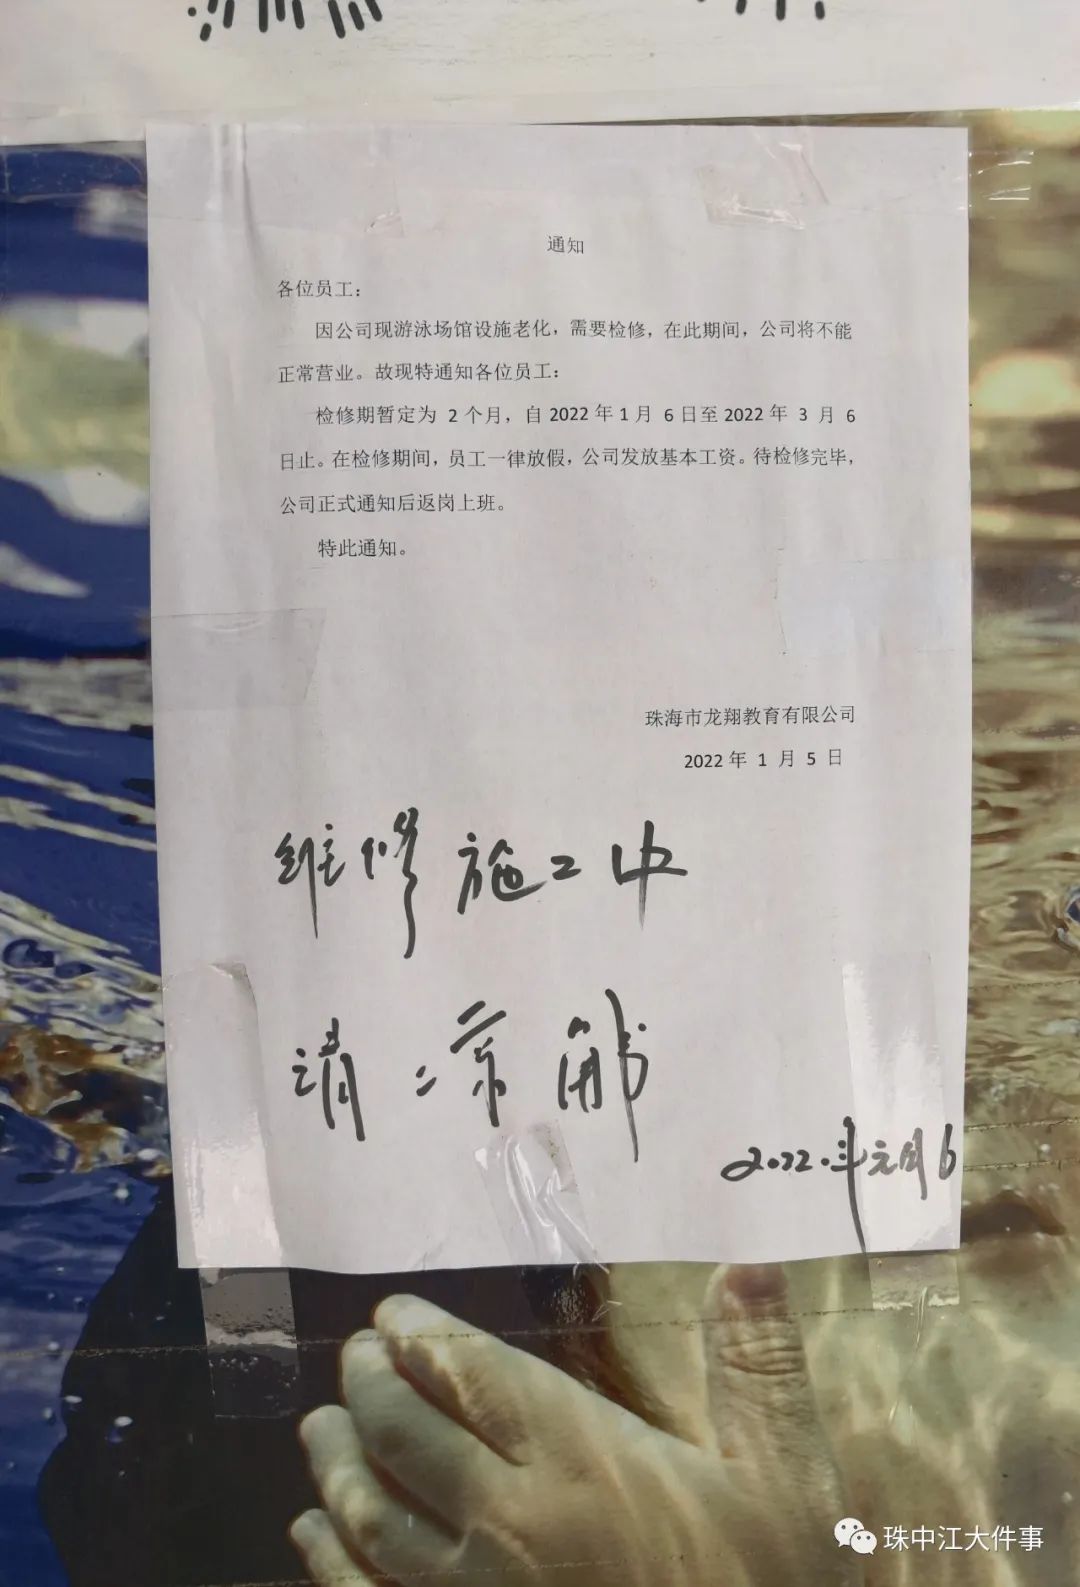 通知
各位员工：
因公司现游泳场馆设施老化，需要检修，在此期间，公司将不能
正常营业。故现特通知各位员工：
检修期暂定为 2 个月，自 2022 年 1 月 6 日至 2022 年 3 月 6
日止。在检修期间，员工一律放假，公司发放基本工资。待检修完毕，
公司正式通知后返岗上班。
特此通知。
珠海市龙翔教育有限公司
2022 年 1 月 5 日
维修施工中
请谅解
2022.年元月6
珠中江大件事